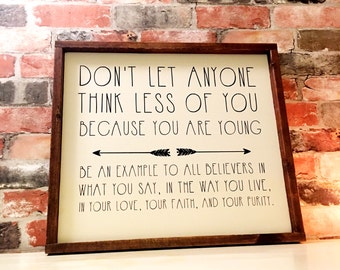 DON'T LET ANYONE
THINK LESS OF YOU
BECAUSE YOU ARE YOUNG
BE AN EXAMPLE TO ALL BELIEVERS IN
WHAT YOU SAY, IN THE WAY YOU LIVE,
IN YOUR LOVE, YOUR FAITH, AND YOUR PURITY.